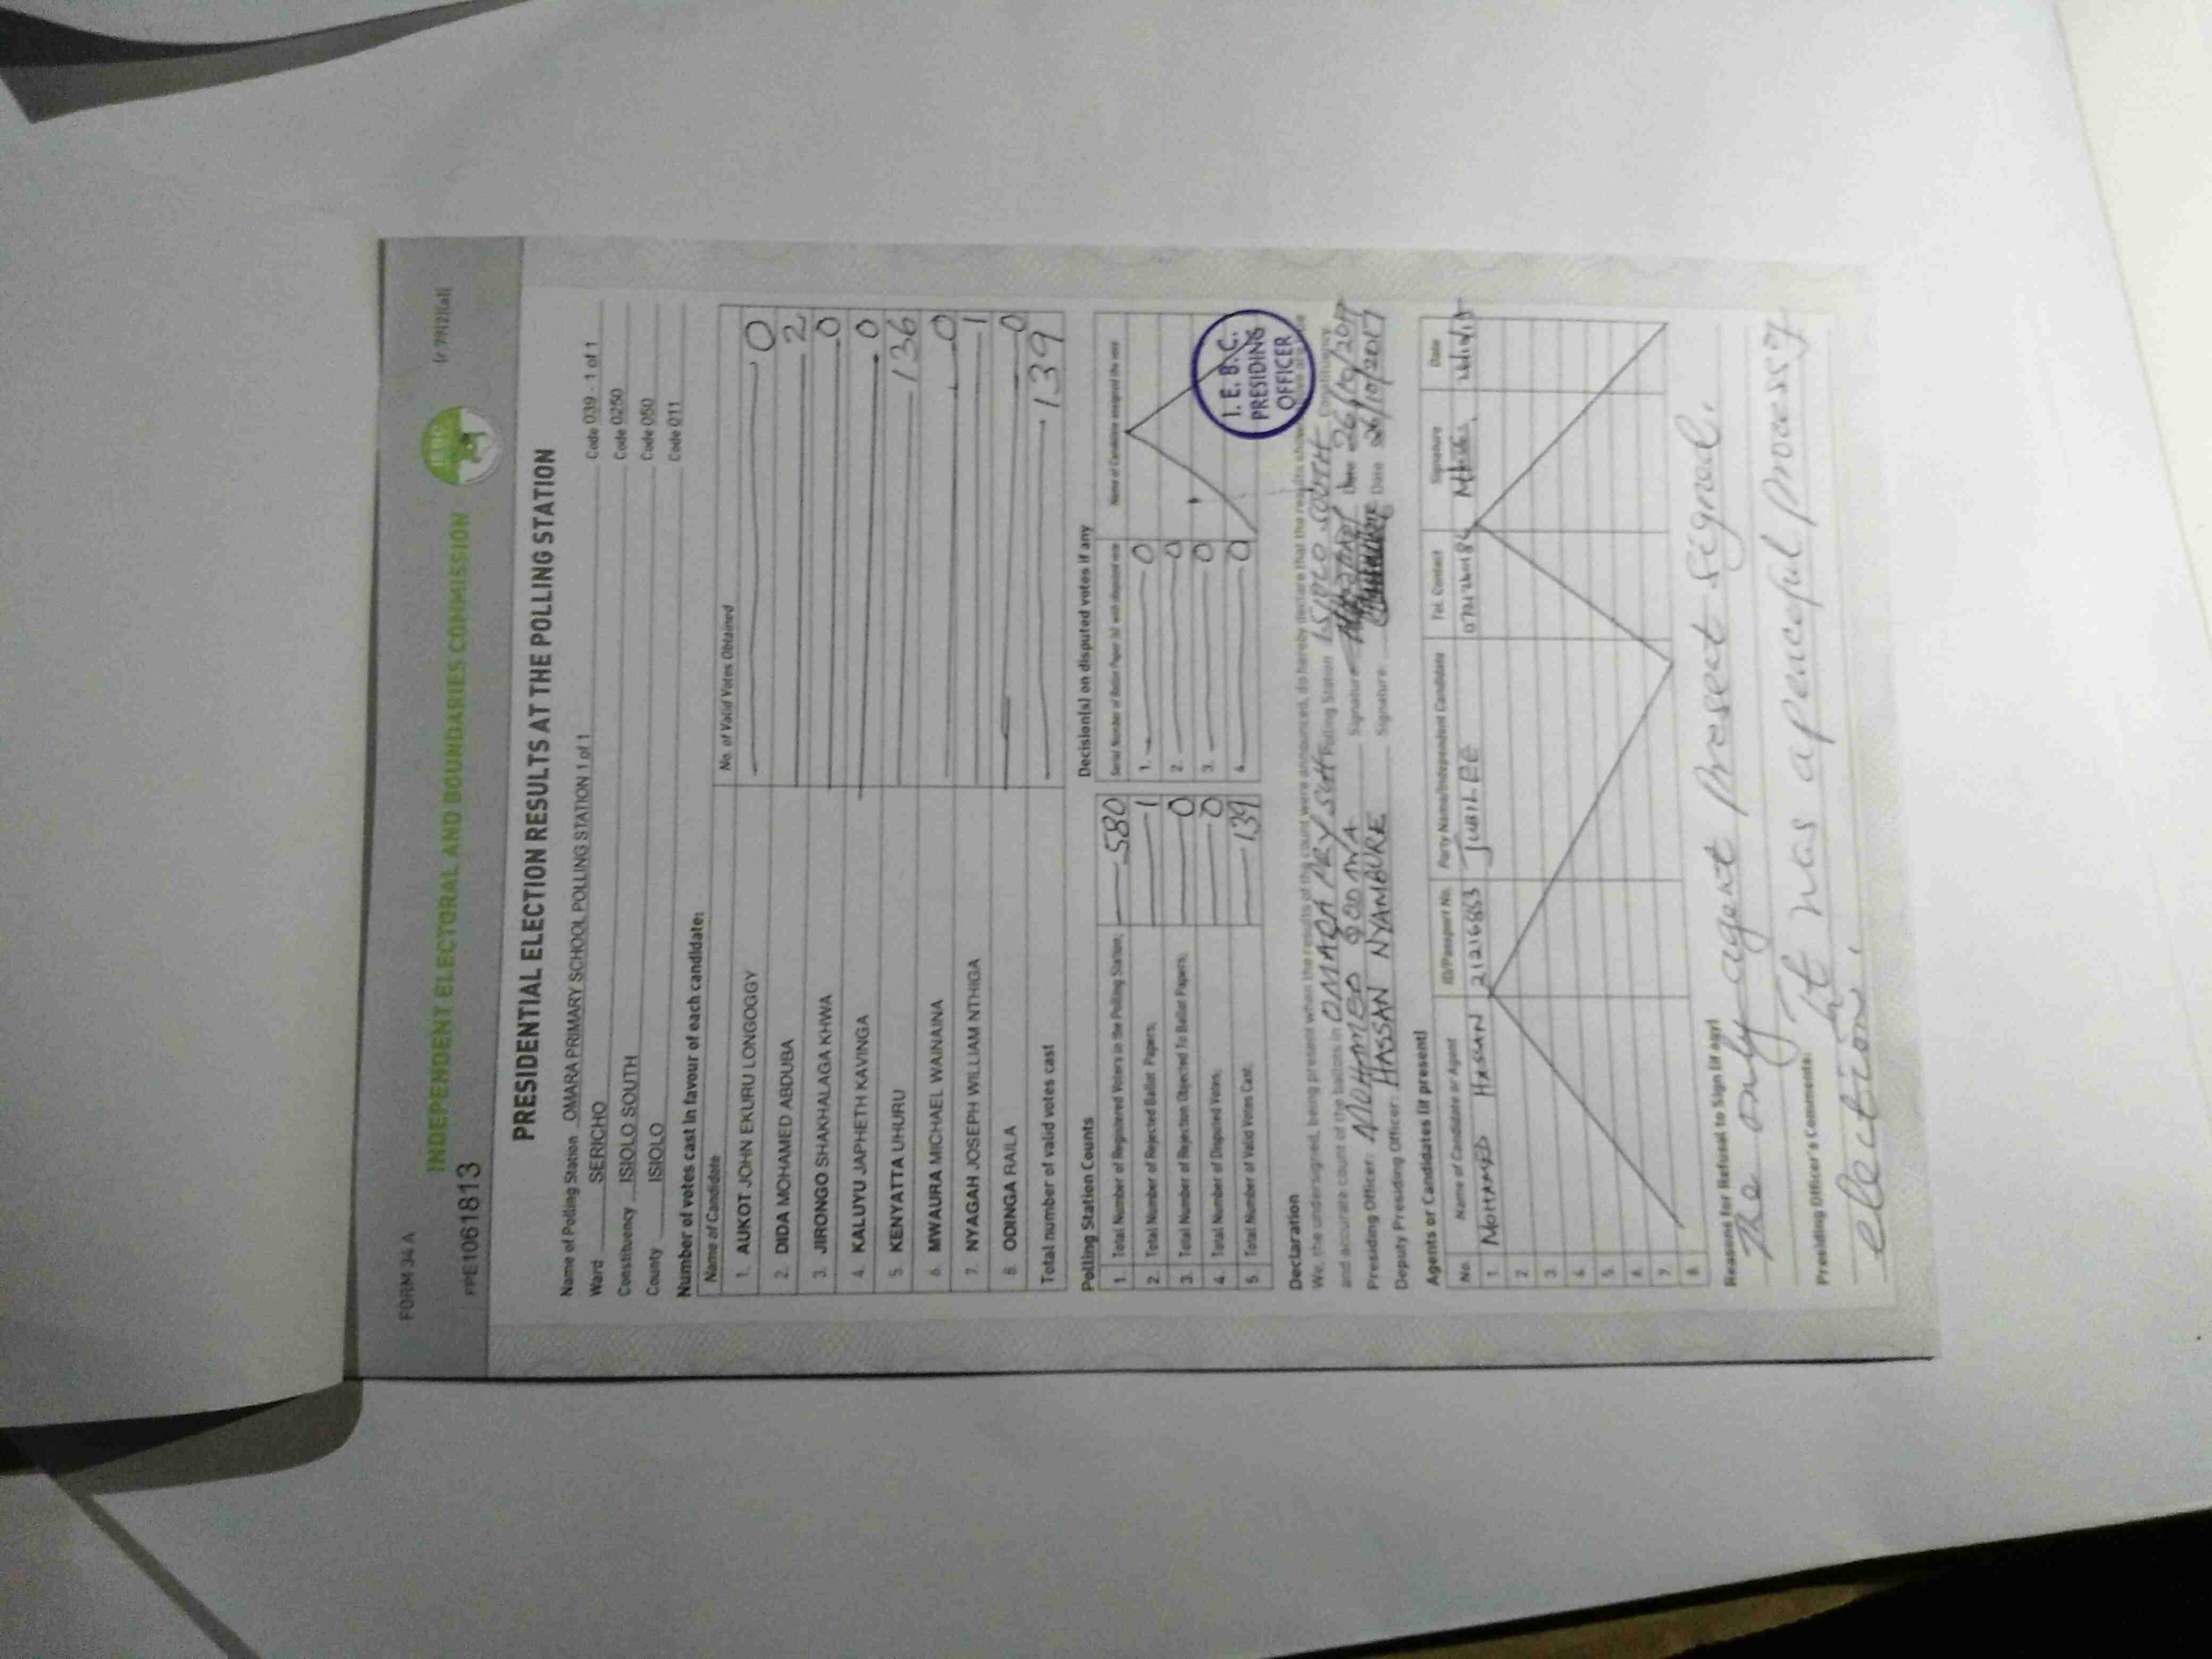 FORM 34 A
(r 79(2)(a))
INDEPENDENT ELECTORAL AND BOUNDARIES COMMISSION
IEBC
PPE1061813
PRESIDENTIAL ELECTION RESULTS AT THE POLLING STATION
Name of Polling Station OMARA PRIMARY SCHOOL POLLING STATION 1 of 1 Code 039 - 1 of 1
Ward SERICHO Code 0250
Constituency ISIOLO SOUTH Code 050
County ISIOLO Code 011
Number of votes cast in favour of each candidate:
Name of Candidate No. of Valid Votes Obtained
1. AUKOT JOHN EKURU LONGOGGY 0
2. DIDA MOHAMED ABDUBA 2
3. JIRONGO SHAKHALAGA KHWA 0
4. KALUYU JAPHETH KAVINGA 0
5. KENYATTA UHURU 136
6. MWAURA MICHAEL WAINAINA 0
7. NYAGAH JOSEPH WILLIAM NTHIGA 1
8. ODINGA RAILA 0
Total number of valid votes cast 139
Polling Station Counts
1. Total Number of Registered Voters in the Polling Station; 580
2. Total Number of Rejected Ballot Papers; 1
3. Total Number of Rejection Objected To Ballot Papers; 0
4. Total Number of Disputed Votes; 0
5. Total Number of Valid Votes Cast; 139
Decision(s) on disputed votes if any
Serial Number of Ballot Paper (s) with disputed vote Name of Candidate assigned the vote
1. 0
2. 0
3. 0
4. 0
I. E. B. C.
PRESIDING
OFFICER
Declaration
We, the undersigned, being present when the results of the count were announced, do hereby declare that the results shown
and accurate count of the ballots in OMARA PRY SCH Polling Station ISIOLO SOUTH Constituency
Presiding Officer: MOHAMED Signature Date 26/10/2017
Deputy Presiding Officer: HASSAN NYAMBURE Signature: Date 26/10/2017
Agents or Candidates (if present)
No. Name of Candidate or Agent ID/Passport No. Party Name/Independent Candidate Tel. Contact Signature Date
1. MOHAMED HASSAN 21216853 JUBILEE
2.
3.
4.
5.
6.
7.
8.
Reasons for Refusal to Sign (if any)
The only agent present signed.
Presiding Officer's Comments: It was a peaceful process
election.